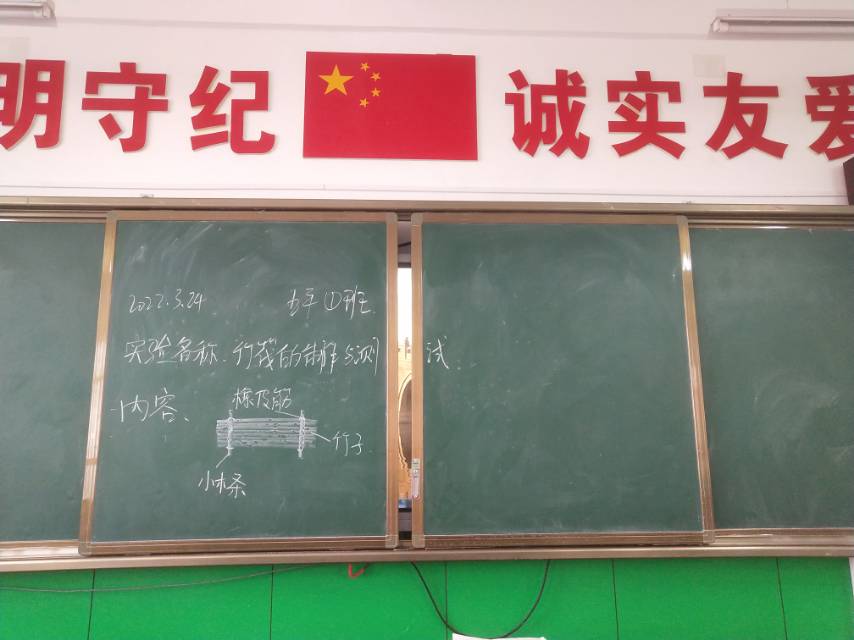 明守纪 诚实友爱
2022.3.24 五年①班
实验名称、竹筏的制作与测试
内容、
橡皮筋
竹子
小木条